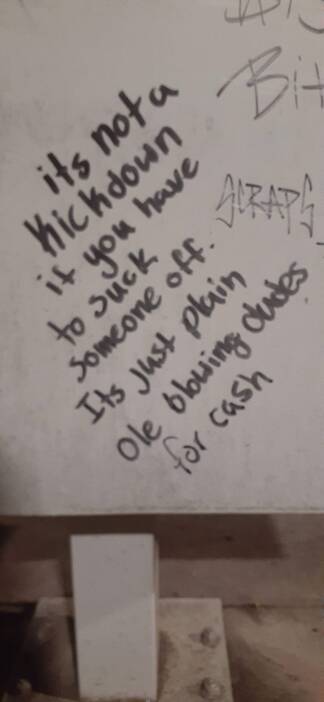 its not a
Kickdown
if you have
to suck
someone off.
Its Just plain
Ole blowing dudes
for cash
Bit
SCRAPS